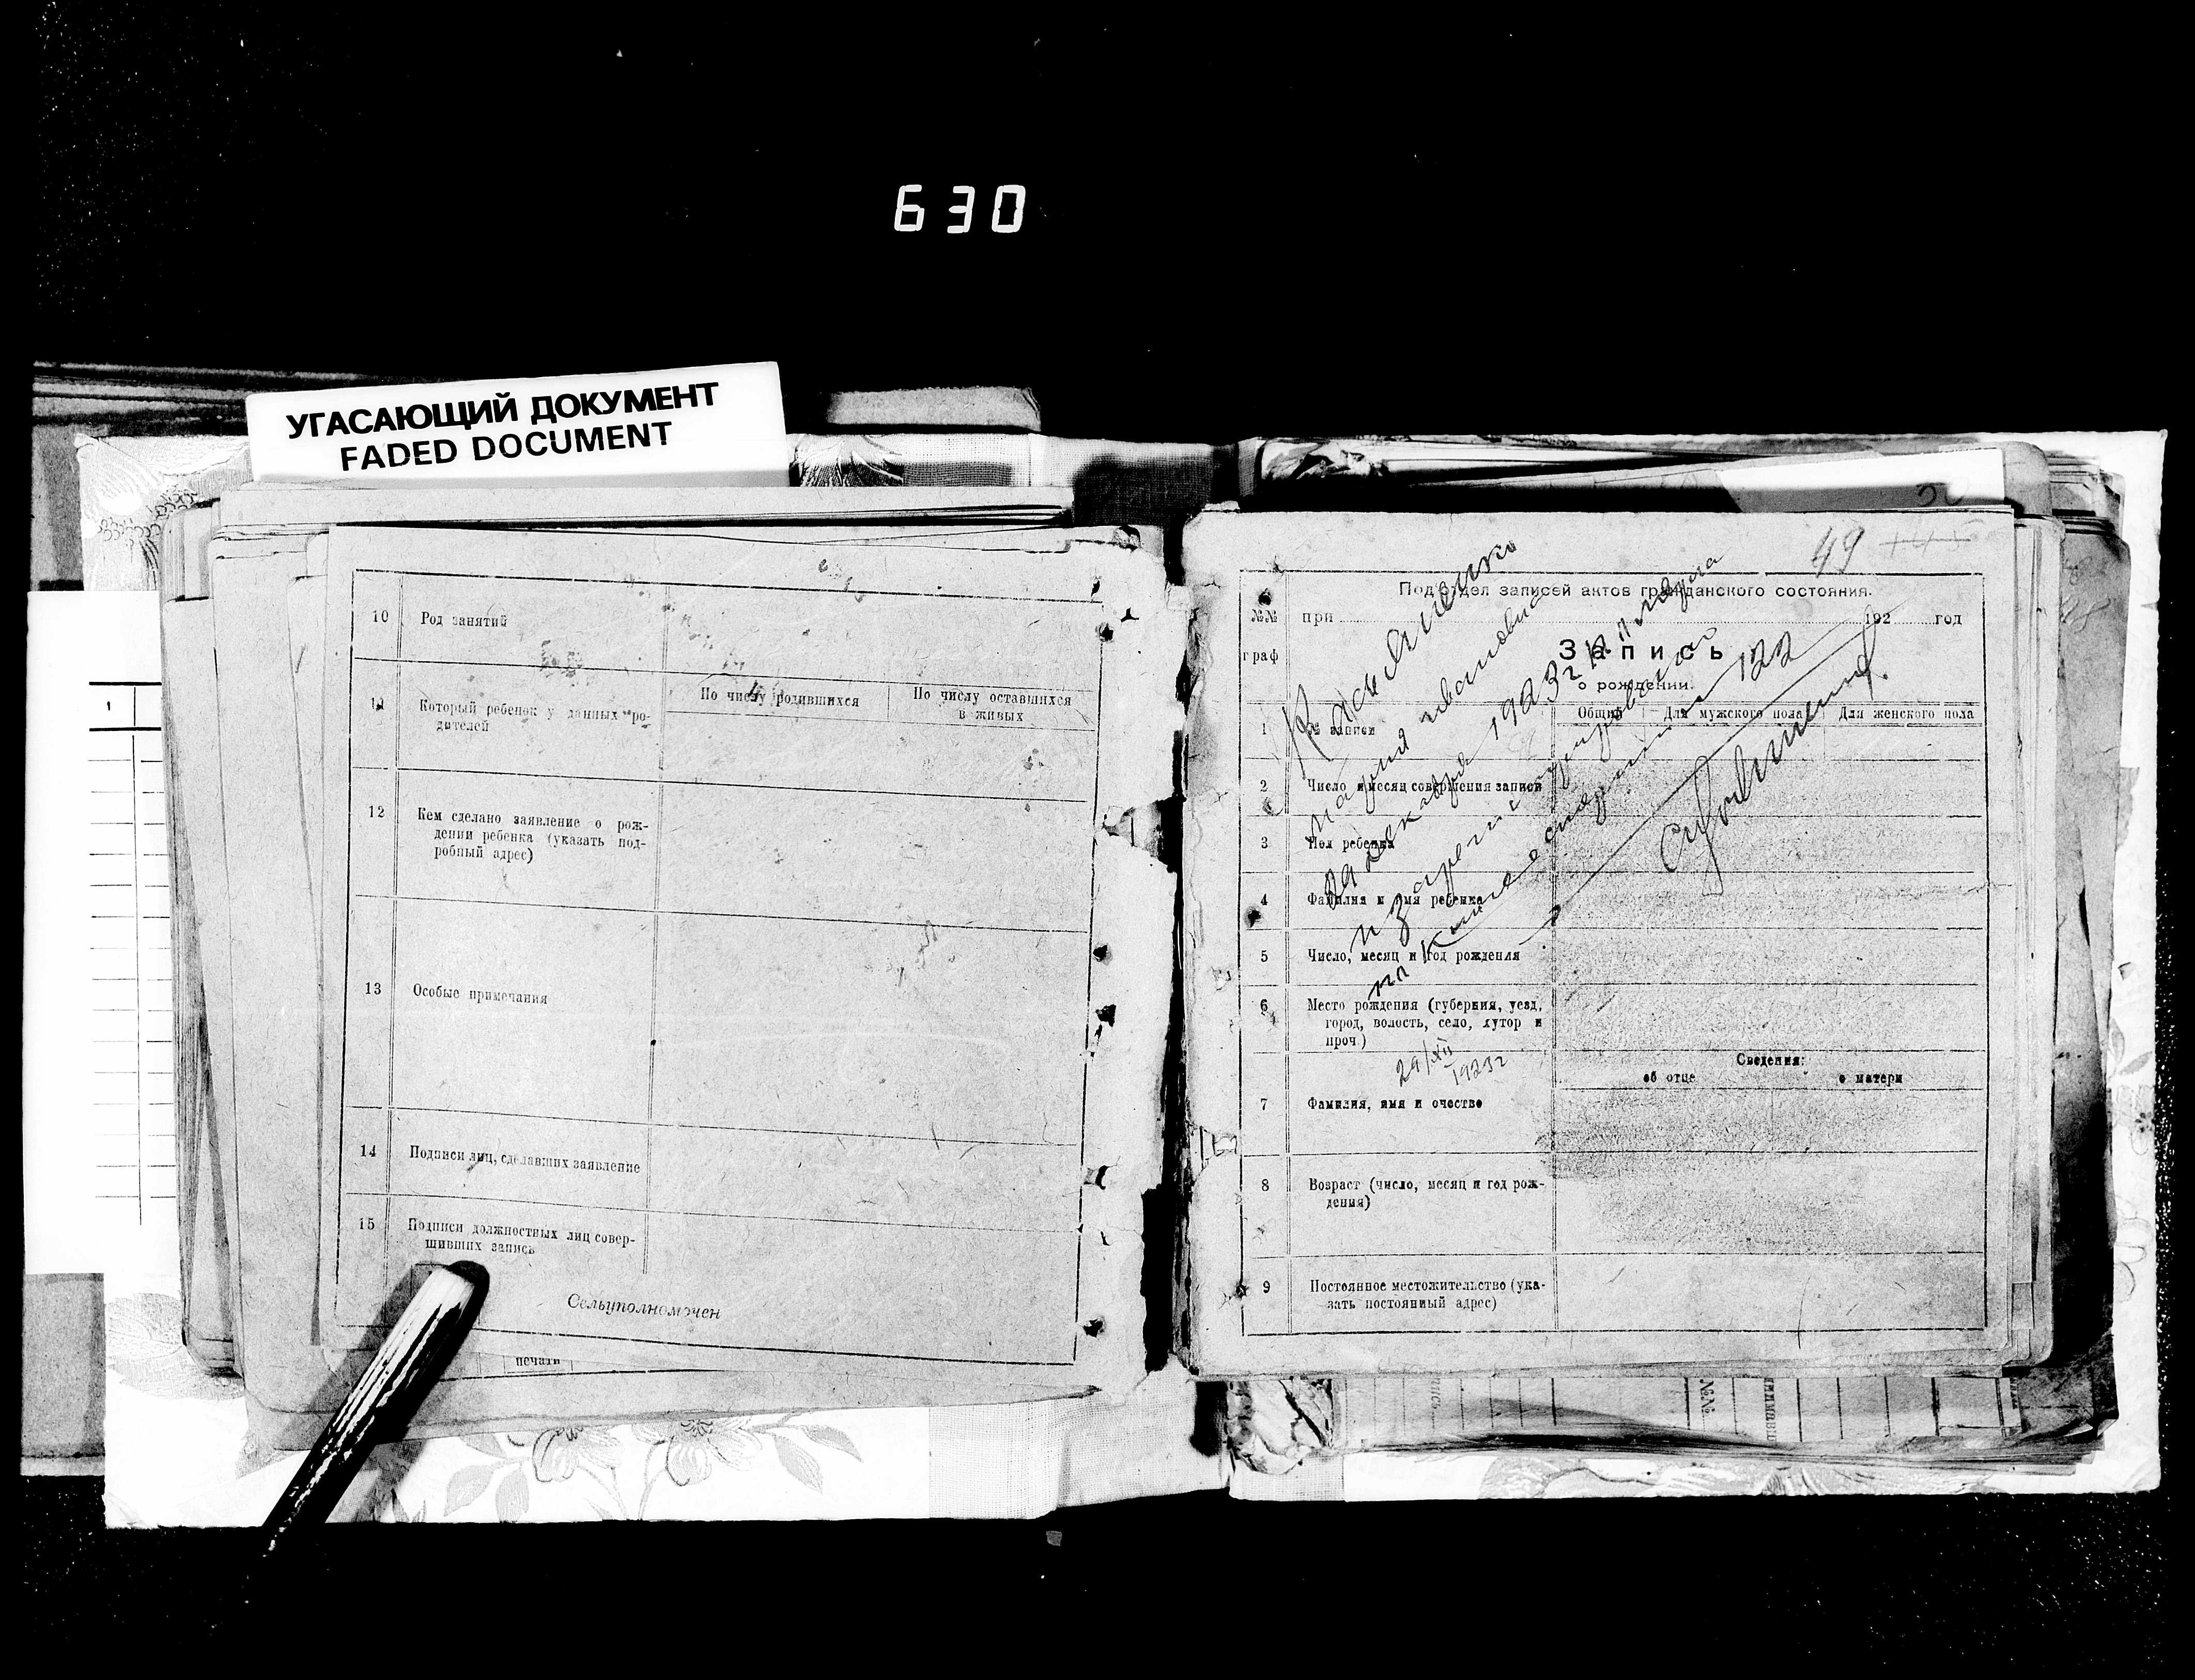 630
УГАСАЮЩИЙ ДОКУМЕНТ
FADED DOCUMENT
10 Род занятий
11 Который ребенок у данных ро-
дителей
По числу родившихся
По числу оставшихся
в живых
12 Кем сделано заявление о рож-
дении ребенка (указать под-
робный адрес)
13 Особые примечания
14 Подписи лиц, сделавших заявление
15 Подписи должностных лиц совер-
шивших запись
Сельуполномочен
печати
49
Подотдел записей актов гражданского состояния.
№№ при 192 год
граф
Запись
о рождении.
Общий Для мужского пола Для женского пола
1 № записи
2 Число и месяц совершения записи
3 Пол ребенка
4 Фамилия и имя ребенка
5 Число, месяц и год рождения
6 Место рождения (губерния, уезд,
город, волость, село, хутор и
проч.)
Сведения:
об отце о матери
7 Фамилия, имя и очество
8 Возраст (число, месяц и год рож-
дения)
9 Постоянное местожительство (ука-
зать постоянный адрес)
Василенко
Мария Ивановна
29 декабря 1923г
122
29/XII
1923г
№№